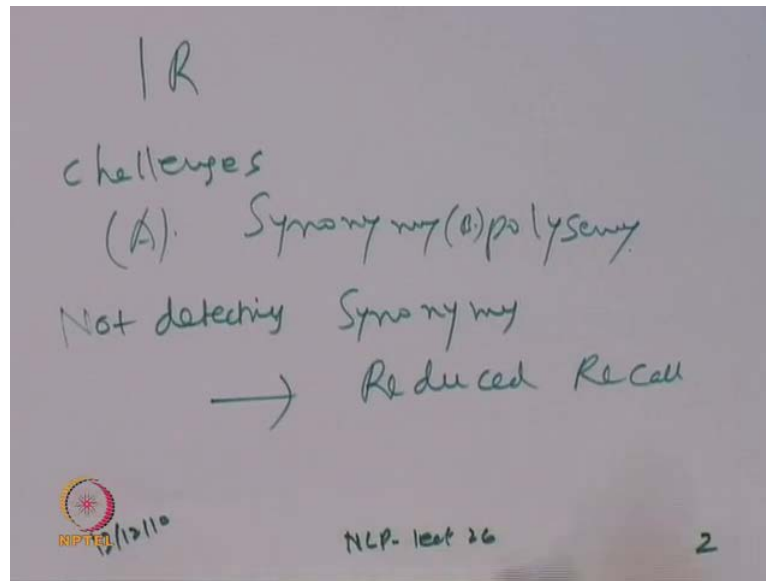 IR
challenges
(A). Synonymy (B) polysemy
Not detecting Synonymy
→ Reduced Recall
NPTEL /12/10
NLP- lect 26
2